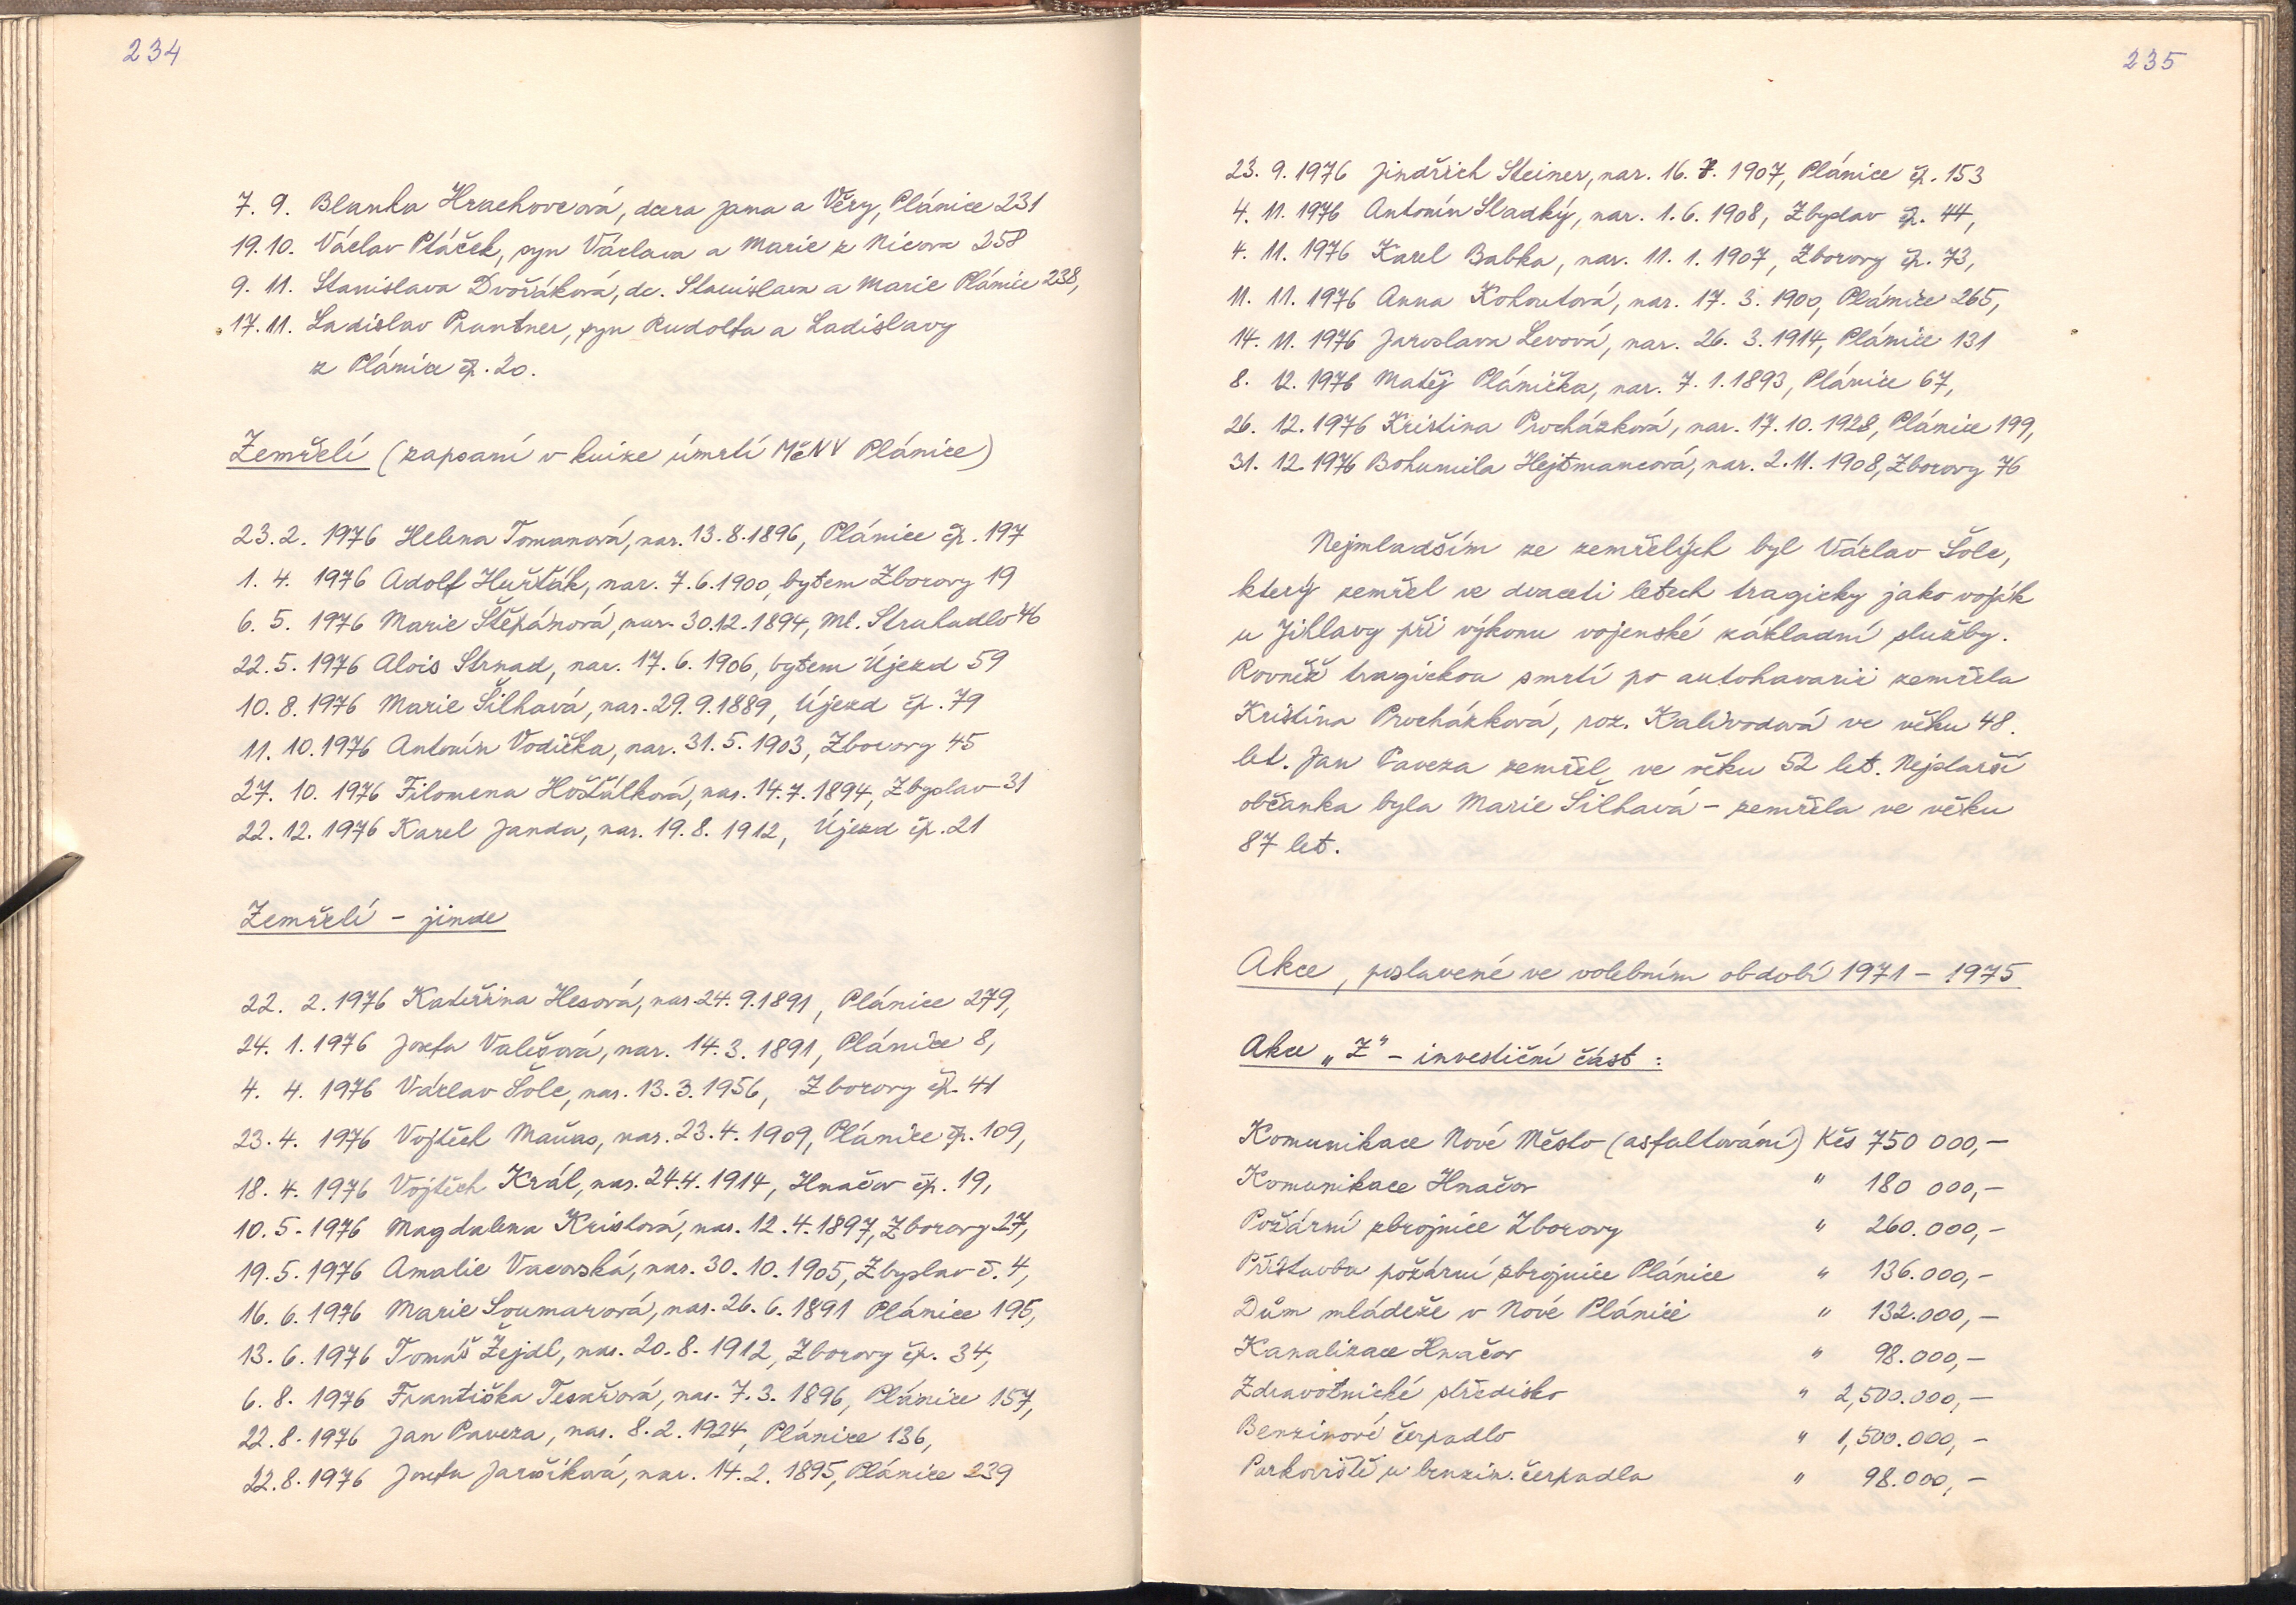 234
7. 9. Blanka Hrachovcová, dcera Jana a Věry, Plánice 231
19.10. Václav Ptáček, syn Václava a Marie z Nicova 258
9. 11. Stanislava Dvořáková, dc. Stanislava a Marie Plánice 238,
17.11. Ladislav Prantner, syn Rudolfa a Ladislavy
z Plánice čp. 20.
Zemřelí (zapsaní v knize úmrtí MěNV Plánice)
23.2. 1976 Helena Tomanová, nar. 13.8.1896, Plánice čp. 197
1. 4. 1976 Adolf Huřťák, nar. 7.6.1900, bytem Zborovy 19
6. 5. 1976 Marie Štěpánová, nar. 30.12.1894, Ml. Struhadlo 46
22.5. 1976 Alois Strnad, nar. 17. 6. 1906, bytem Újezd 59
10. 8. 1976 Marie Šilhavá, nar. 29. 9. 1889, Újezd čp. 79
11. 10. 1976 Antonín Vodička, nar. 31. 5. 1903, Zborovy 45
27. 10. 1976 Filomena Hošťálková, nar. 14. 7. 1894, Zbyslav 31
22. 12. 1976 Karel Janda, nar. 19. 8. 1912, Újezd čp. 21
Zemřelí - jinde
22. 2. 1976 Kateřina Hesová, nar. 24. 9. 1891, Plánice 279,
24. 1. 1976 Josefa Valešová, nar. 14. 3. 1891, Plánice 8,
4. 4. 1976 Václav Šole, nar. 13. 3. 1956, Zborovy čp. 41
23. 4. 1976 Vojtěch Mačas, nar. 23. 4. 1909, Plánice čp. 109,
18. 4. 1976 Vojtěch Král, nar. 24.4. 1914, Hnačov čp. 19,
10. 5. 1976 Magdalena Kristová, nar. 12. 4. 1897, Zborovy 27,
19. 5. 1976 Amalie Vacovská, nar. 30. 10. 1905, Zbyslav č. 4,
16. 6. 1976 Marie Soumarová, nar. 26. 6. 1891 Plánice 195,
13. 6. 1976 Tomáš Žejdl, nar. 20. 8. 1912, Zborovy čp. 34,
6. 8. 1976 Františka Tesařová, nar. 7. 3. 1896, Plánice 157,
22. 8. 1976 Jan Paveza, nar. 8. 2. 1924, Plánice 136,
22. 8. 1976 Josefa Jarošíková, nar. 14. 2. 1895, Plánice 239
235
23. 9. 1976 Jindřich Steiner, nar. 16. 7. 1907, Plánice čp. 153
4. 11. 1976 Antonín Sladký, nar. 1. 6. 1908, Zbyslav čp. 44,
4. 11. 1976 Karel Babka, nar. 11. 1. 1907, Zborovy čp. 73,
11. 11. 1976 Anna Kohoutová, nar. 17. 3. 1900, Plánice 265,
14. 11. 1976 Jaroslava Levová, nar. 26. 3. 1914, Plánice 131
8. 12. 1976 Matěj Plánička, nar. 7. 1. 1893, Plánice 67,
26. 12. 1976 Kristina Procházková, nar. 17. 10. 1928, Plánice 199,
31. 12. 1976 Bohumila Hejtmancová, nar. 2. 11. 1908, Zborovy 76
Nejmladším ze zemřelých byl Václav Šole,
který zemřel ve dvaceti letech tragicky jako voják
u Jihlavy při výkonu vojenské základní služby.
Rovněž tragickou smrtí po autohavarii zemřela
Kristina Procházková, roz. Kalivodová ve věku 48.
let. Jan Paveza zemřel ve věku 52 let. Nejstarší
občanka byla Marie Šilhavá - zemřela ve věku
87 let.
Akce, postavené ve volebním období 1971 - 1975
Akce „Z" - investiční část :
Komunikace Nové Město (asfaltování) Kčs 750 000,-
Komunikace Hnačov " 180 000,-
Požární zbrojnice Zborovy " 260.000,-
Přístavba požární zbrojnice Plánice " 136.000,-
Dům mládeže v Nové Plánici " 132.000,-
Kanalizace Hnačov " 98.000,-
Zdravotnické středisko " 2,500.000,-
Benzinové čerpadlo " 1,500.000,-
Parkoviště u benzin. čerpadla " 98.000,-